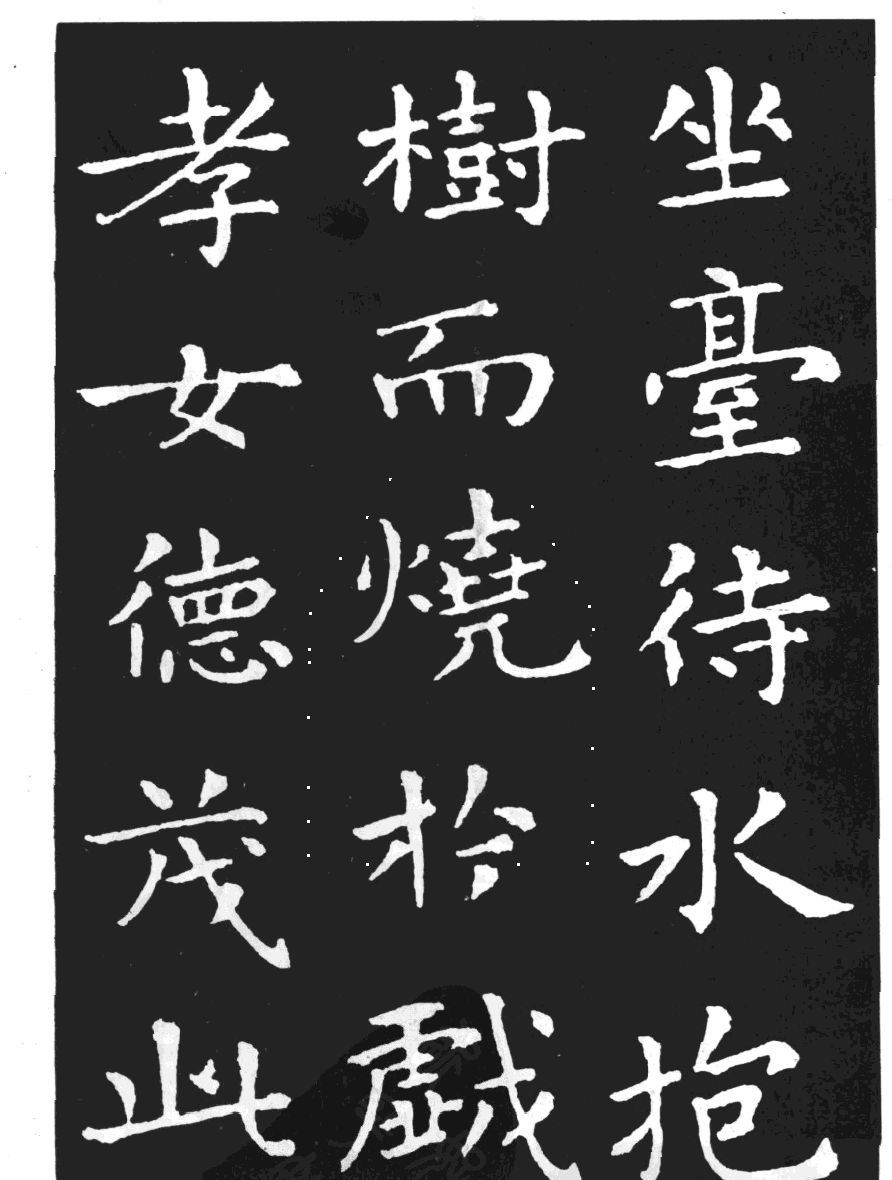 坐臺待水抱
樹而燒於戲
孝女德茂此